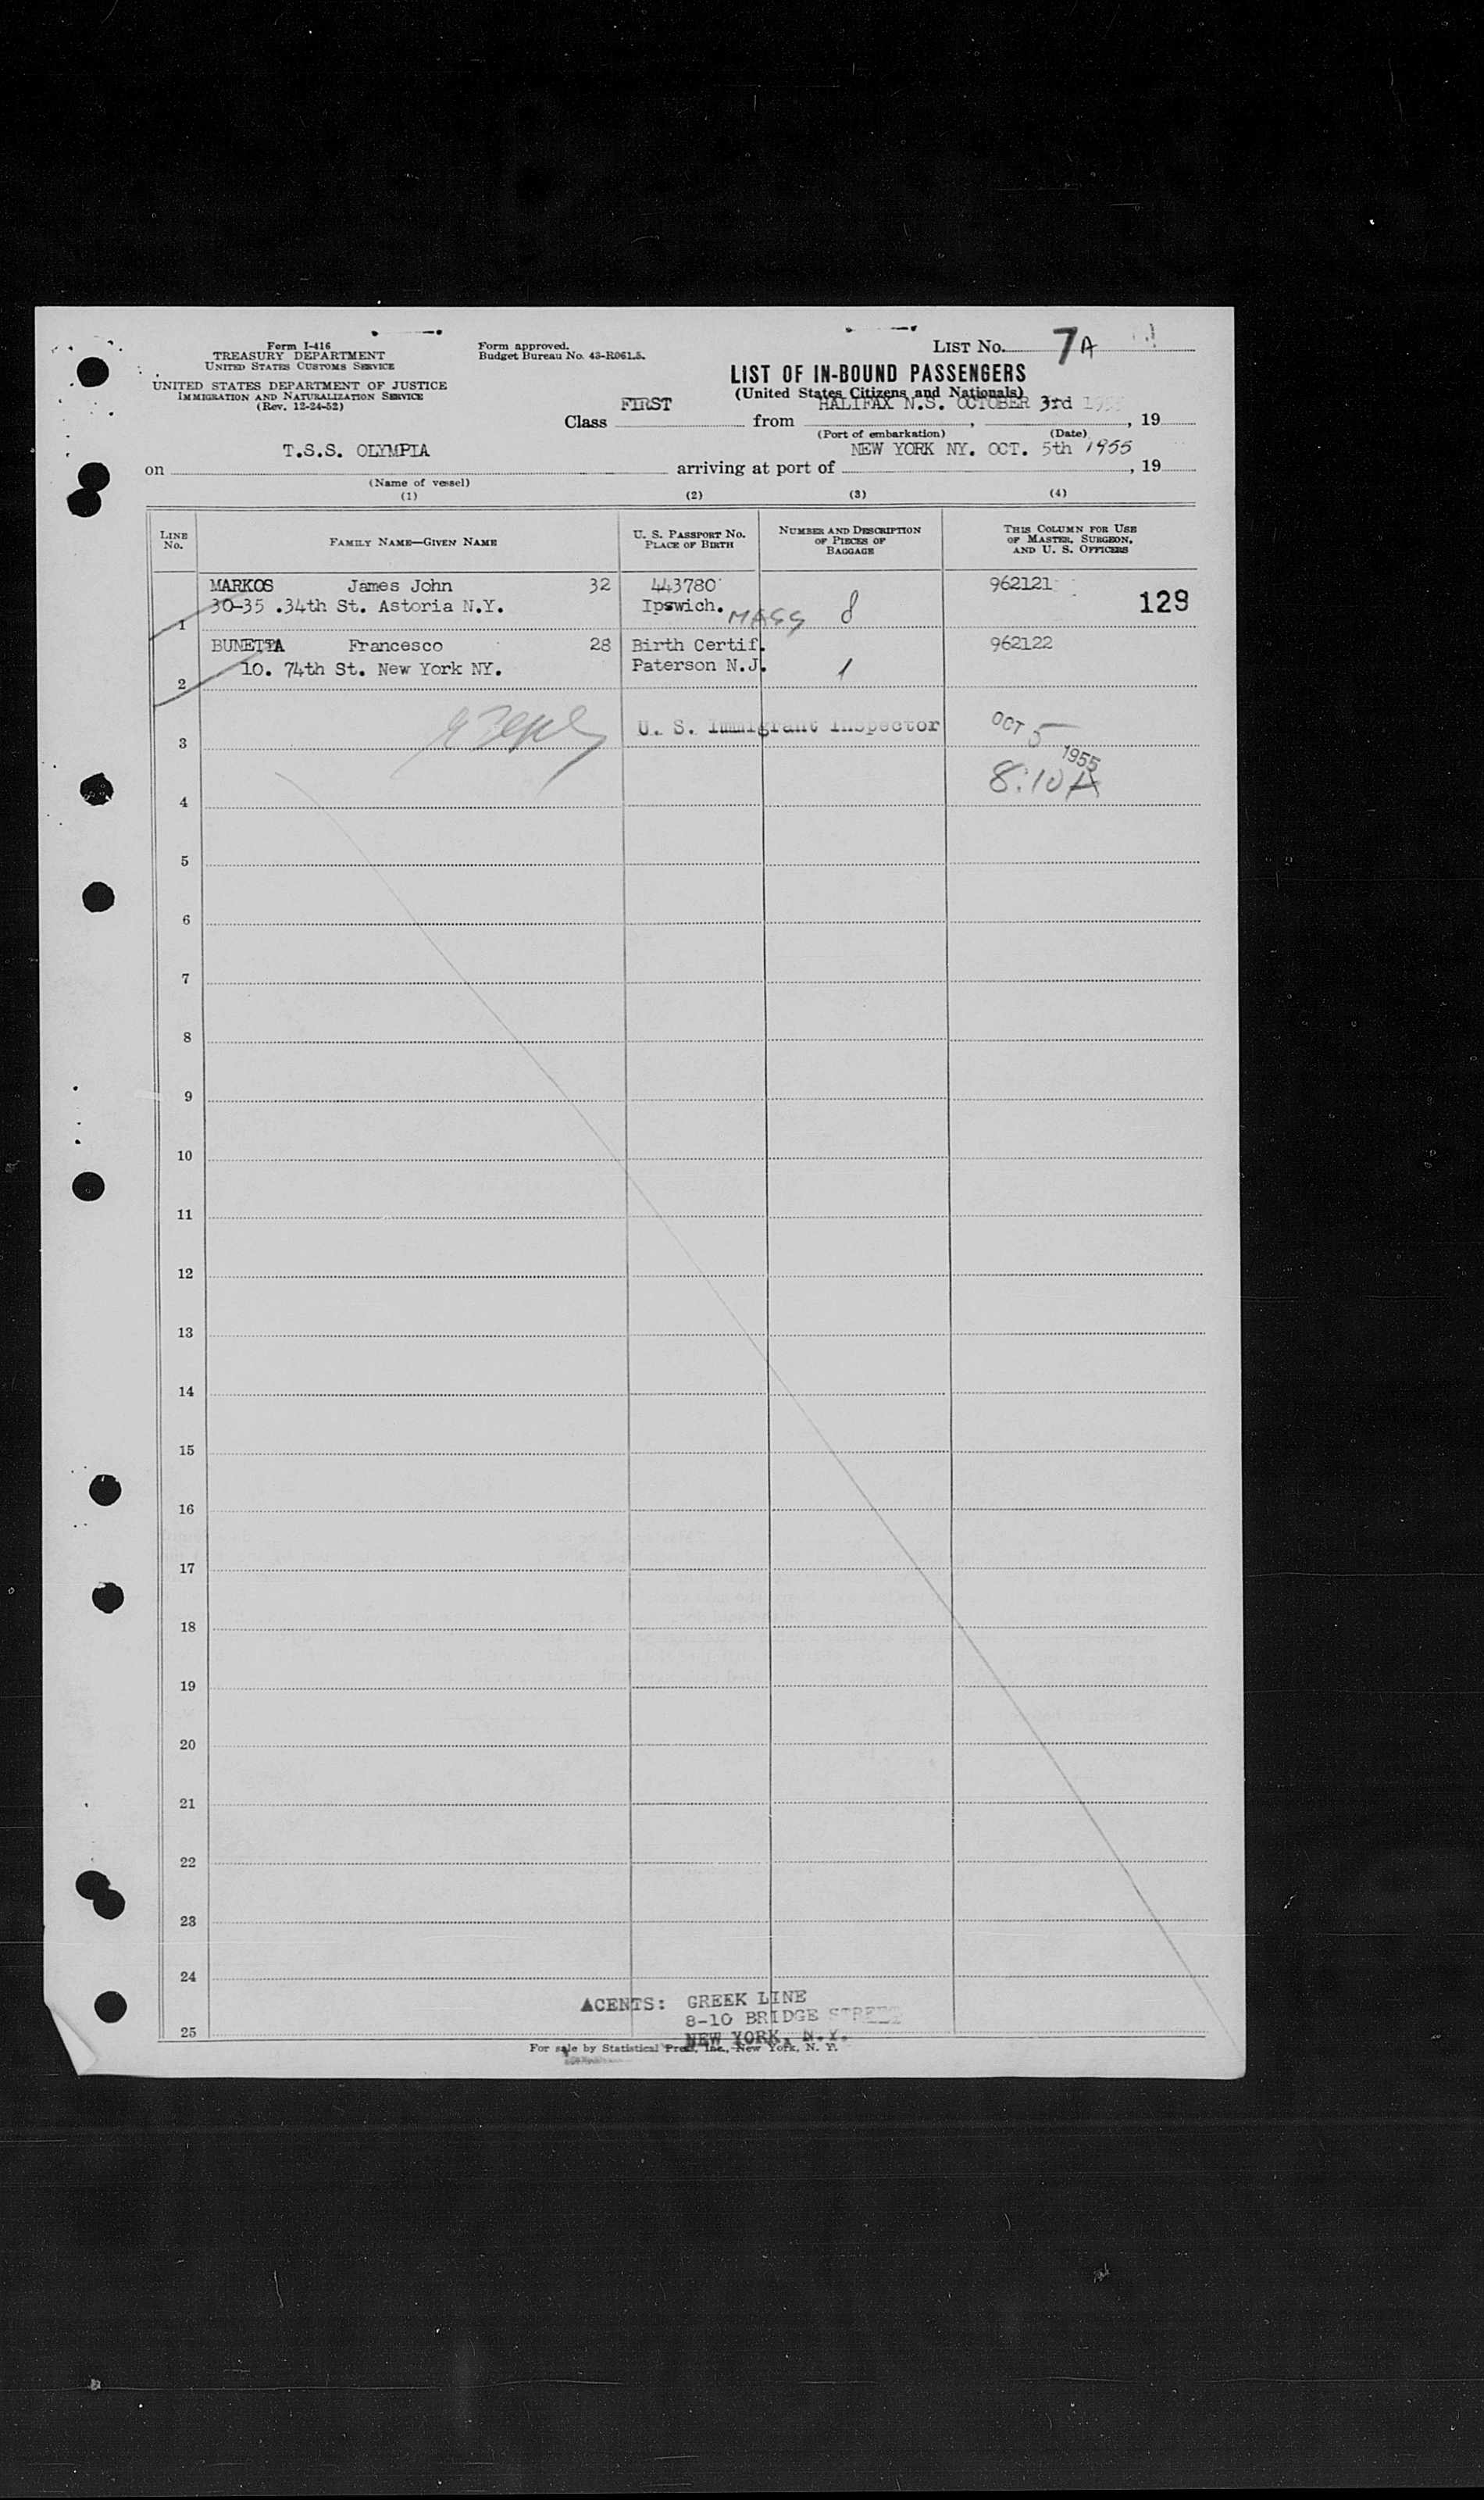 Form I-416
TREASURY DEPARTMENT
UNITED STATES CUSTOMS SERVICE
UNITED STATES DEPARTMENT OF JUSTICE
IMMIGRATION AND NATURALIZATION SERVICE
(Rev. 12-24-52)
Form approved.
Budget Bureau No. 43-R061.5.
LIST No. 7A
LIST OF IN-BOUND PASSENGERS
(United States Citizens and Nationals)
Class FIRST from HALIFAX N.S. OCTOBER 3rd 1955, 19
(Port of embarkation) (Date)
on T.S.S. OLYMPIA arriving at port of NEW YORK NY. OCT. 5th 1955, 19
(Name of vessel)
(1) (2) (3) (4)
LINE No. FAMILY NAME—GIVEN NAME U. S. PASSPORT NO. PLACE OF BIRTH NUMBER AND DESCRIPTION OF PIECES OF BAGGAGE THIS COLUMN FOR USE OF MASTER, SURGEON, AND U. S. OFFICERS
MARKOS James John 32 443780 962121
1 30-35 .34th St. Astoria N.Y. Ipswich. MASS 8 129
BUNETTA Francesco 28 Birth Certif. 962122
2 10. 74th St. New York NY. Paterson N.J. 1
3 U. S. Immigrant Inspector OCT 5 1955
4 8:10 A
5
6
7
8
9
10
11
12
13
14
15
16
17
18
19
20
21
22
23
24
AGENTS: GREEK LINE
8-10 BRIDGE STREET
25 NEW YORK, N.Y.
For sale by Statistical Press, Inc., New York, N. Y.